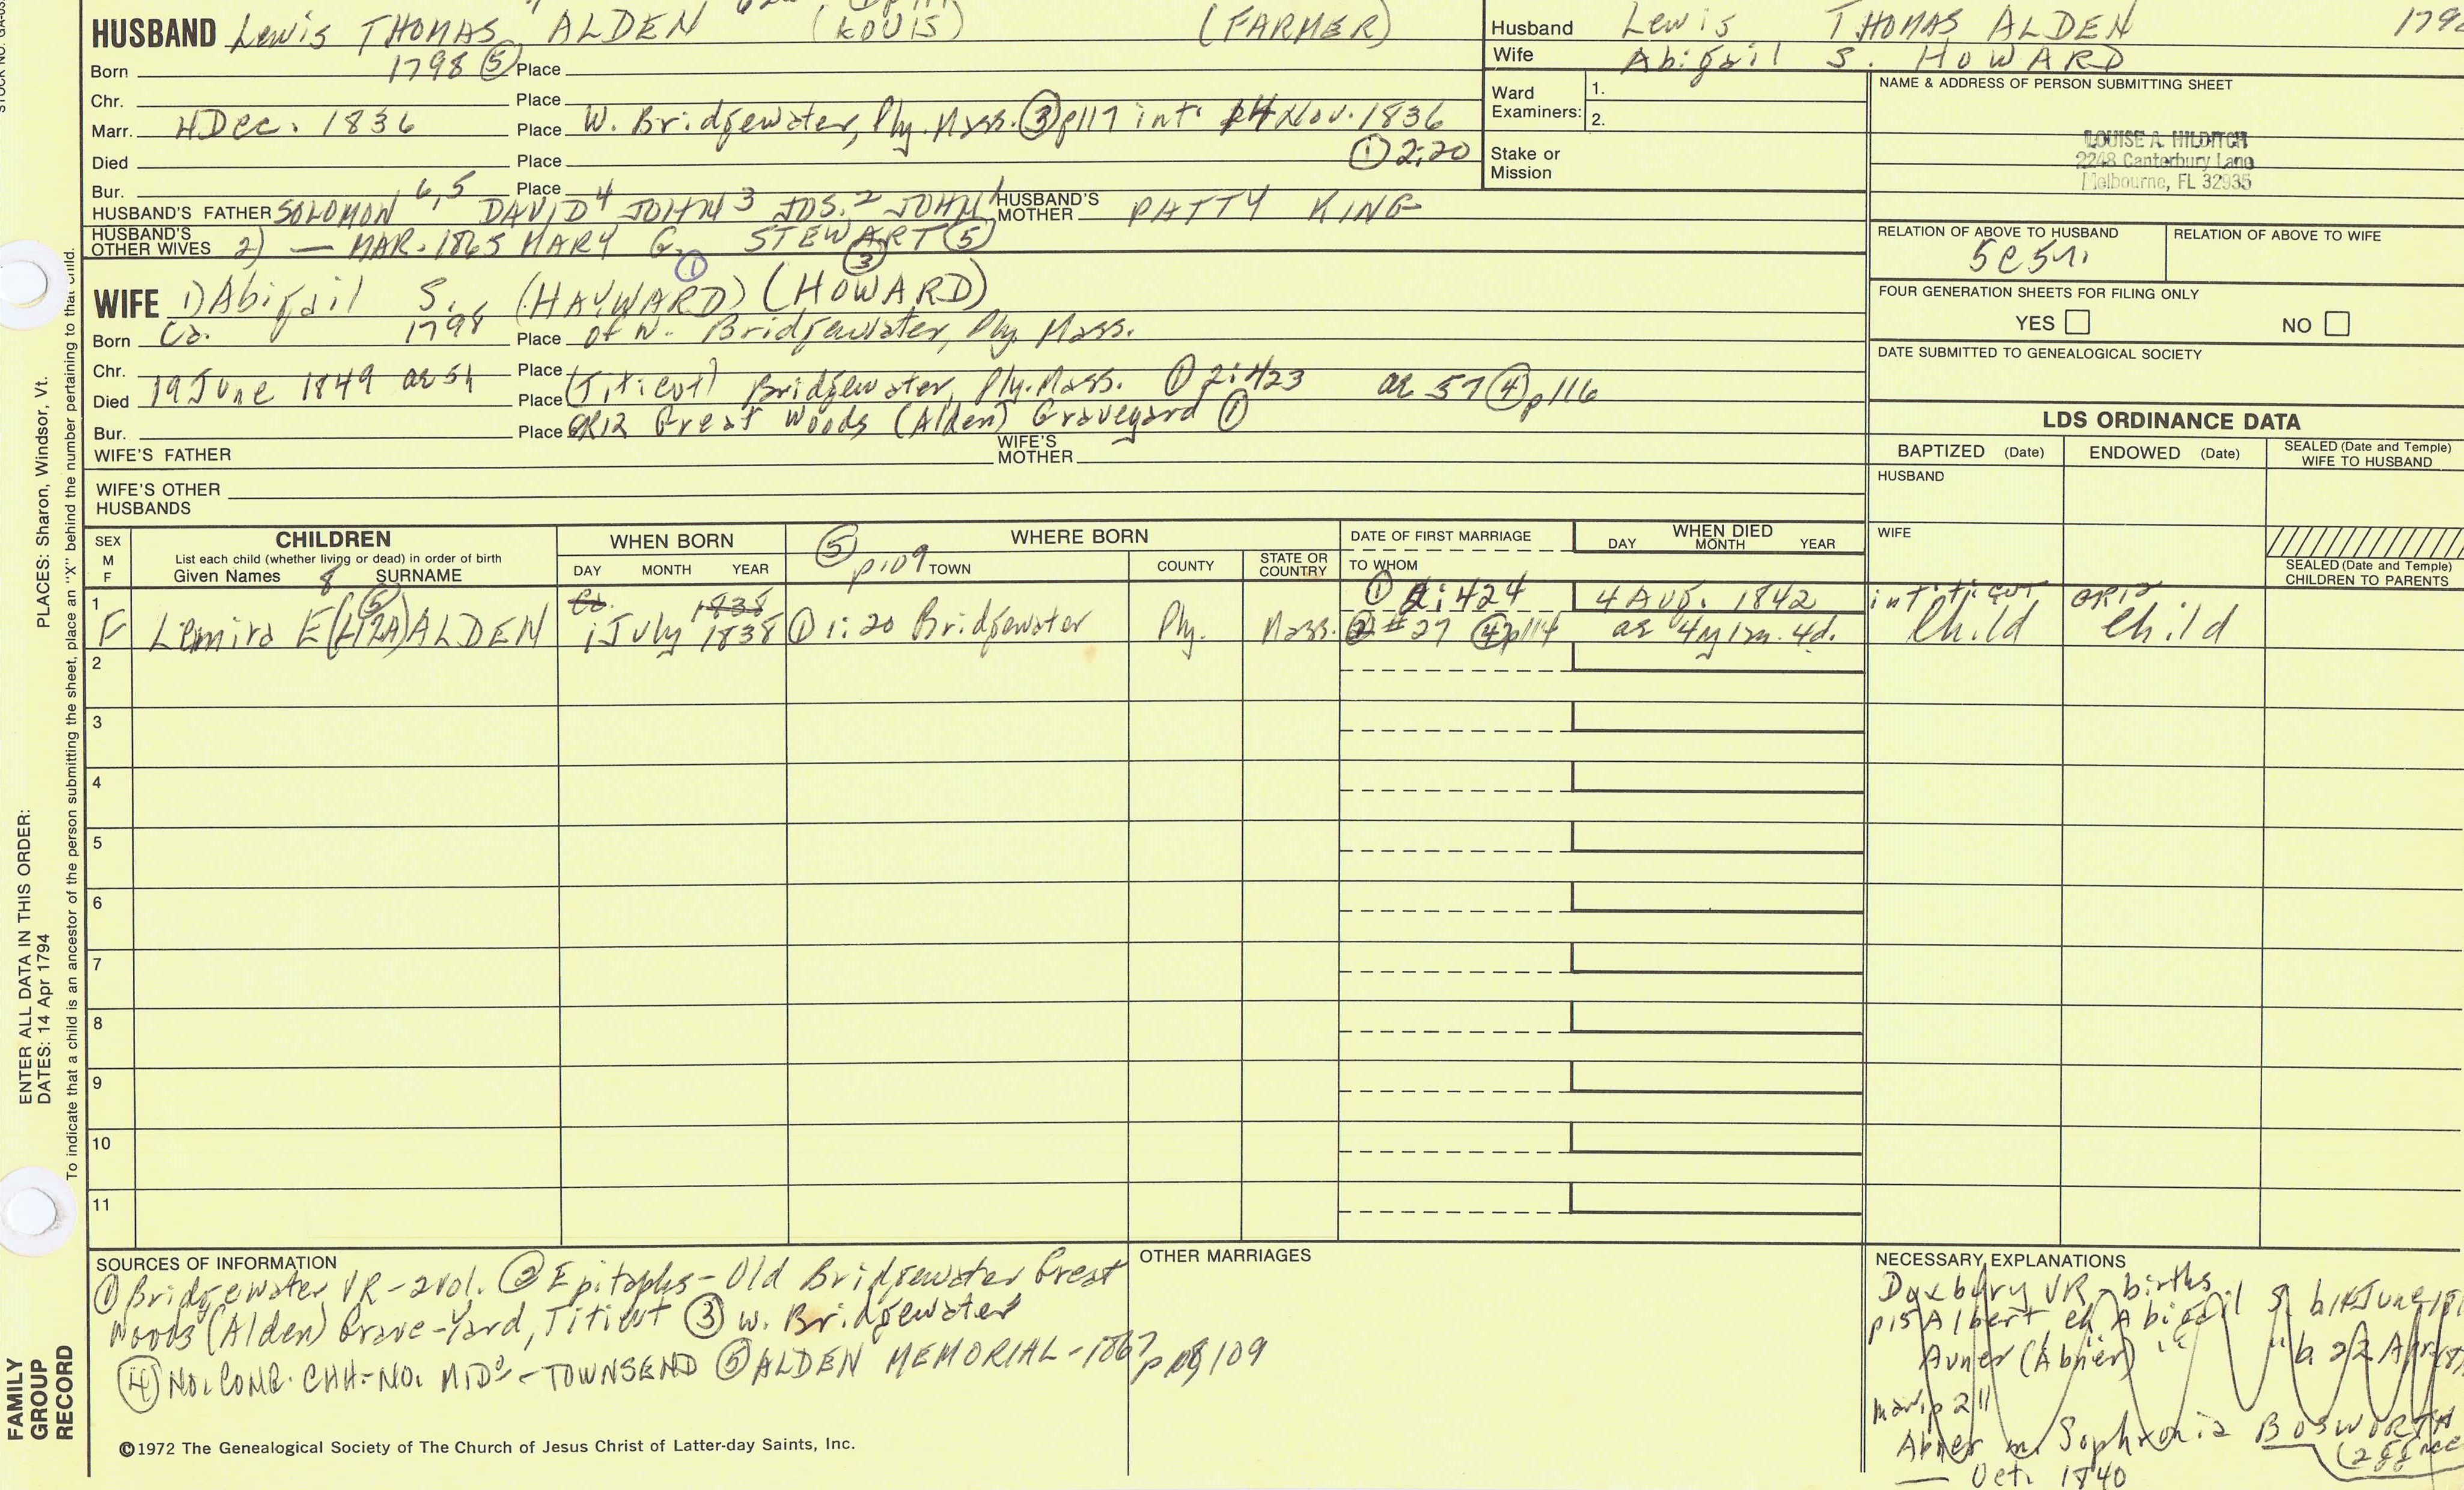 HUSBAND Lewis THOMAS ALDEN (LOUIS) (FARMER)
Born 1798 ⑤ Place
Chr. Place
Marr. 4 Dec. 1836 Place W. Bridgewater, Ply. Mass. ③ p117 int. Nov. 1836
Died Place ① 2:20
Bur. Place
HUSBAND'S FATHER SOLOMON 6,5 DAVID 4 JOHN 3 JOS. 2 JOHN 1 HUSBAND'S MOTHER PATTY KING
HUSBAND'S OTHER WIVES 2) — MAR. 1865 MARY G. STEWART ⑤
① ③
WIFE 1) Abigail S. (HAYWARD) (HOWARD)
Born Ca. 1798 Place of W. Bridgewater, Ply. Mass.
Chr. Place
Died 19 June 1849 ae 54 Place (Titicut) Bridgewater, Ply. Mass. ① 2:423 ae 57 ④ p116
Bur. Place GR12 Great Woods (Alden) Graveyard ①
WIFE'S FATHER WIFE'S MOTHER
WIFE'S OTHER HUSBANDS
Husband Lewis THOMAS ALDEN
Wife Abigail S. HOWARD
Ward Examiners: 1.
2.
Stake or Mission
NAME & ADDRESS OF PERSON SUBMITTING SHEET
LOUISE A. HILDITCH
2248 Canterbury Lane
Melbourne, FL 32935
RELATION OF ABOVE TO HUSBAND RELATION OF ABOVE TO WIFE
FOUR GENERATION SHEETS FOR FILING ONLY
YES NO
DATE SUBMITTED TO GENEALOGICAL SOCIETY
LDS ORDINANCE DATA
BAPTIZED (Date) ENDOWED (Date) SEALED (Date and Temple) WIFE TO HUSBAND
HUSBAND
WIFE
SEALED (Date and Temple) CHILDREN TO PARENTS
SEX M F CHILDREN WHEN BORN WHERE BORN DATE OF FIRST MARRIAGE WHEN DIED
List each child (whether living or dead) in order of birth
Given Names 8 SURNAME DAY MONTH YEAR ⑤ p109 TOWN COUNTY STATE OR COUNTRY TO WHOM DAY MONTH YEAR
1 Ca. 1838 ① 2:424 4 Aug. 1842 in Titicut GR12
F Lemira E (LIZA) ⑤ ALDEN 1 July 1838 ① 1:20 Bridgewater Ply. Mass. ② #27 ④ p114 ae 4y 1m. 4d. Child Child
2
3
4
5
6
7
8
9
10
11
SOURCES OF INFORMATION
① Bridgewater VR - 2 vol. ② Epitaphs - Old Bridgewater Great
Woods (Alden) Grave-Yard, Titicut ③ W. Bridgewater
④ NO. CONG. CHH - NO. MIDo - TOWNSEND ⑤ ALDEN MEMORIAL - 1867 109
©1972 The Genealogical Society of The Church of Jesus Christ of Latter-day Saints, Inc.
OTHER MARRIAGES
NECESSARY EXPLANATIONS
Duxbury VR - births
p15 Albert ch Abigail S. b 14 June
Avner (Abner) " " b. 22 Apr.
Mar. p 211
Abner m. Sophronia BOSWORTH
— Oct. 1840
PLACES: Sharon, Windsor, Vt.
ENTER ALL DATA IN THIS ORDER:
DATES: 14 Apr 1794
To indicate that a child is an ancestor of the person submitting the sheet, place an "X" behind the number pertaining to that child.
FAMILY
GROUP
RECORD